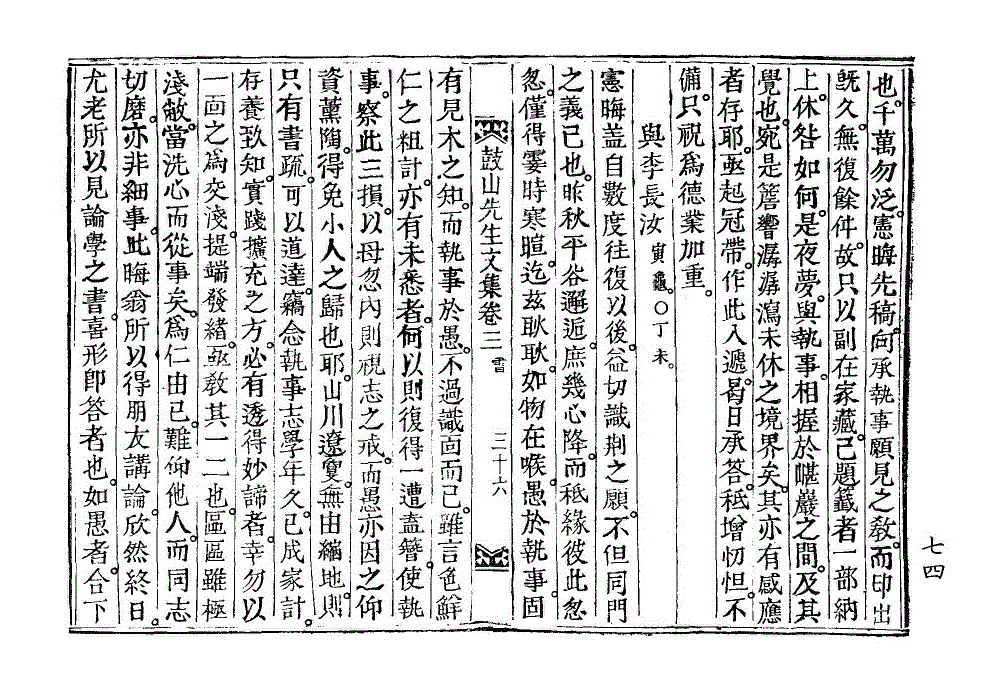 也。千萬勿泛。憲晦先稿。向承執事願見之教。而印出
旣久。無復餘件。故只以副在家藏。已題籤者一部納
上。休咎如何。是夜夢。與執事。相握於嵁巖之間。及其
覺也。宛是簷響潺潺瀉未休之境界矣。其亦有感應
者存耶。亟起冠帶。作此入遞。曷日承答。秪增忉怛。不
備。只祝爲德業加重。
與李長汝 寅龜。○丁未。
憲晦盖自數度往復以後。益切識荆之願。不但同門
之義已也。昨秋平谷邂逅。庶幾心降。而秪緣彼此忽
忽。僅得霎時寒暄。迄玆耿耿。如物在喉。愚於執事。固
鼓山先生文集卷三 書 三十六
有見木之知。而執事於愚。不過識面而已。雖言色鮮
仁之粗計。亦有未悉者。何以則復得一遭盍簪。使執
事。察此三損。以母忽內則視志之戒。而愚亦因之仰
資薰陶。得免小人之歸也耶。山川遼夐。無由縮地。則
只有書疏。可以道達。竊念執事志學年久。已成家計。
存養致知。實踐擴充之方。必有透得妙諦者。幸勿以
一面之爲交淺。提端發緖。亟敎其一二也。區區雖極
淺敝。當洗心而從事矣。爲仁由己。難仰他人。而同志
切磨。亦非細事。此晦翁所以得朋友講論。欣然終日。
尤老所以見論學之書。喜形卽答者也。如愚者。合下
七四